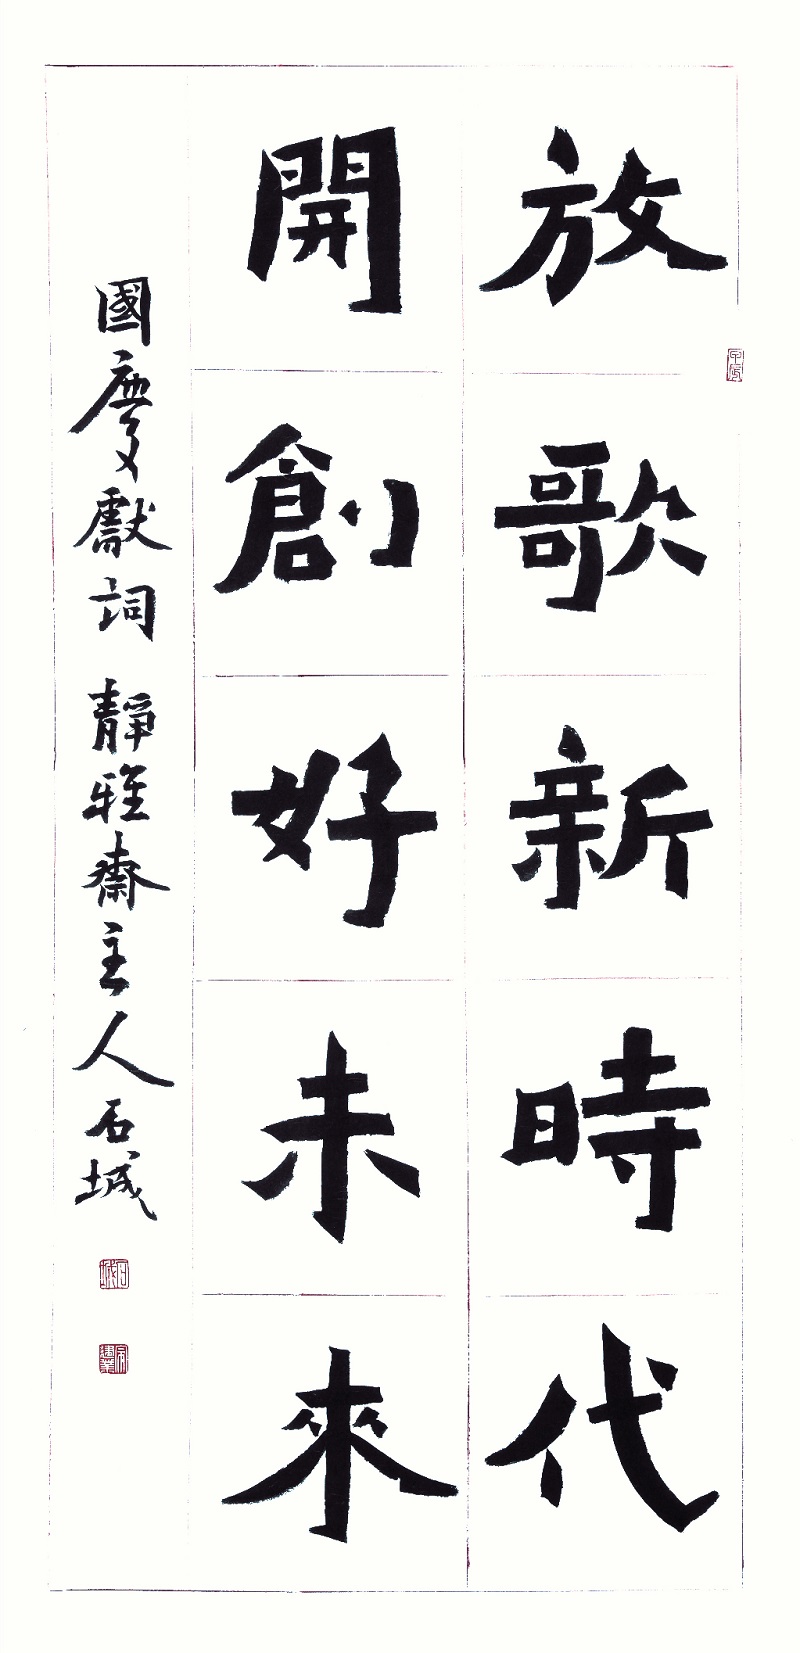 放歌新時代
開創好未來
國慶獻詞 靜雅齋主人 石城
石城